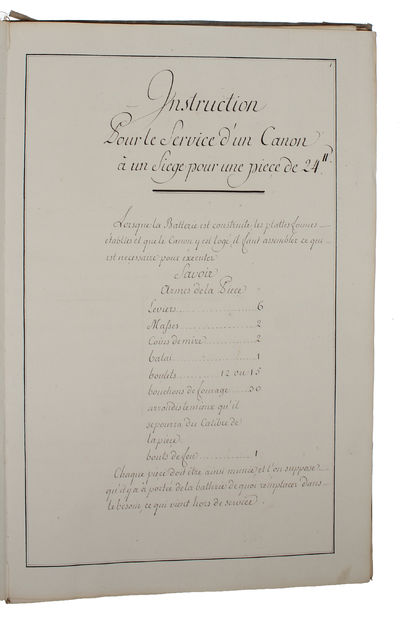 Instruction
Pour le Service d'un Canon
à un Siege pour une piece de 24."
Lorsque la Batterie est construite les plattes formes
établies et que le Canon y est logé il faut assembler ce qui
est necessaire pour executer
Savoir
Armes de la Piece
Leviers...................6
Masses...................2
Coins de mire............2
balai.....................1
boulets..........12 ou 15
bouchons de fourage......30
arrondis le mieux qu'il
se pourra du Calibre de
la piece
bouts de feu..............1
Chaque piece doit être ainsi munie et l'on suppose
qu'il y a à portée de la batterie de quoi remplacer dans
le besoin, ce qui vient hors de service.